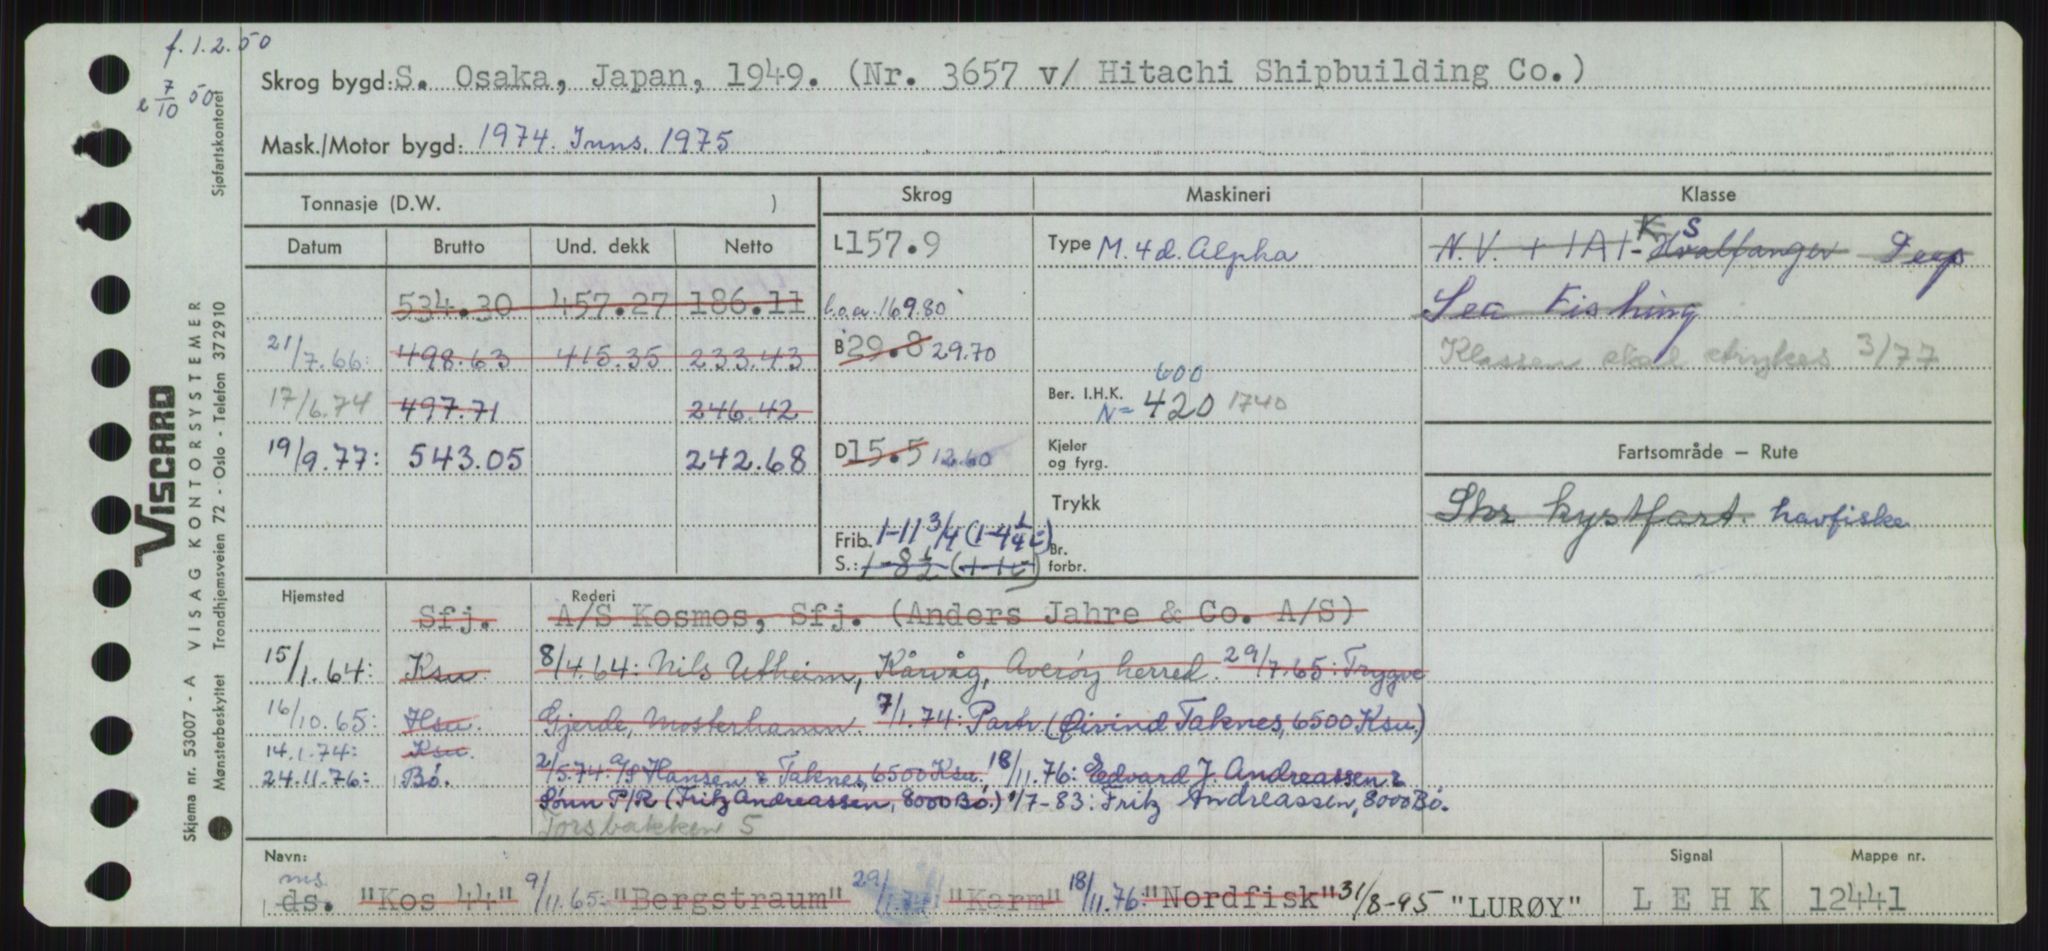 f. 1.2.50
e 7/10 50
Skrog bygd: S. Osaka, Japan, 1949. (Nr. 3657 v/ Hitachi Shipbuilding Co.)
Mask./Motor bygd: 1974. Inns. 1975
Tonnasje (D.W. ) Skrog Maskineri Klasse
Datum Brutto Und. dekk Netto
L 157.9 Type M. 4 d. Alpha N.V. + 1A1 - K S Hvalfanger Deep
534.30 457.27 186.11 l.o.a. 169.80 Sea Fishing
21/7.66: 498.63 415.35 233.43 B 29.8 29.70 Klassen skal strykes 3/77
17/6.74 497.71 246.42 Ber. I.H.K. 600 N= 420 1740
19/9.77: 543.05 242.68 D 15.5 12.60 Kjeler og fyrg. Fartsområde – Rute
Trykk Skr kystfart. havfiske
Frib. 1-11 3/4 (1-4 1/4 L) Br. forbr.
S.: 1-8 1/2 (1-1 L)
Hjemsted Sfj. Rederi A/S Kosmos, Sfj. (Anders Jahre & Co. A/S)
15/1.64: Ksu. 8/4.64: Nils Utheim, Kårvåg, Averøy herred. 29/7.65: Trygve
16/10.65: Hsu. Gjerde, Mosterhamn. 7/1.74: Partr. (Øivind Taknes, 6500 Ksu.)
14.1.74: Ksu. 2/5.74: A/S Hansen & Taknes, 6500 Ksu. 18/11.76: Edvard J. Andreassen &
24.11.76: Bø. Sønn P/R (Fritz Andreassen, 8000 Bø.) 1/7-83: Fritz Andreassen, 8000 Bø.
Torsbakken 5
Navn: Signal Mappe nr.
ms.
ds. "Kos 44" 9/11.65: "Bergstraum" 29/1.74 "Karm" 18/11.76: "Nordfisk" 31/8-95 "LURØY" L E H K 12441
VISCARD
Skjema nr. 53007 - A VISAG KONTORSYSTEMER
Mønsterbeskyttet Trondhjemsveien 72 - Oslo - Telefon 372910 Sjøfartskontoret